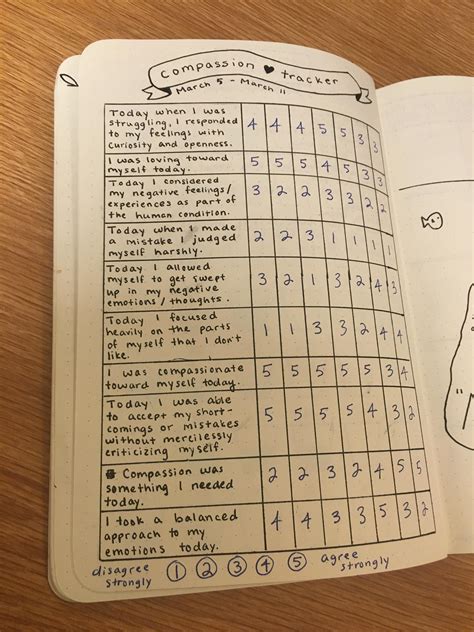 compassion tracker
March 5 - March 11
Today when I was
struggling, I responded
to my feelings with
curiosity and openness.
4 4 4 5 5 3 3
I was loving toward
myself today.
5 5 5 4 5 3 3
Today I considered
my negative feelings/
experiences as part of
the human condition.
3 2 2 3 3 2 2
Today when I made
a mistake I judged
myself harshly.
2 2 3 1 1 1 1
Today I allowed
myself to get swept
up in my negative
emotions / thoughts.
3 2 1 3 2 4 4
Today I focused
heavily on the parts
of myself that I don't
like.
1 1 3 3 2 4 4
I was compassionate
toward myself today.
5 5 5 5 5 3 4
Today I was able
to accept my short-
comings or mistakes
without mercilessly
criticizing myself.
5 5 5 5 4 3 2
Compassion was
something I needed
today.
2 2 3 2 4 5 5
I took a balanced
approach to my
emotions today.
4 4 3 3 5 3 2
disagree strongly 1 2 3 4 5 agree strongly